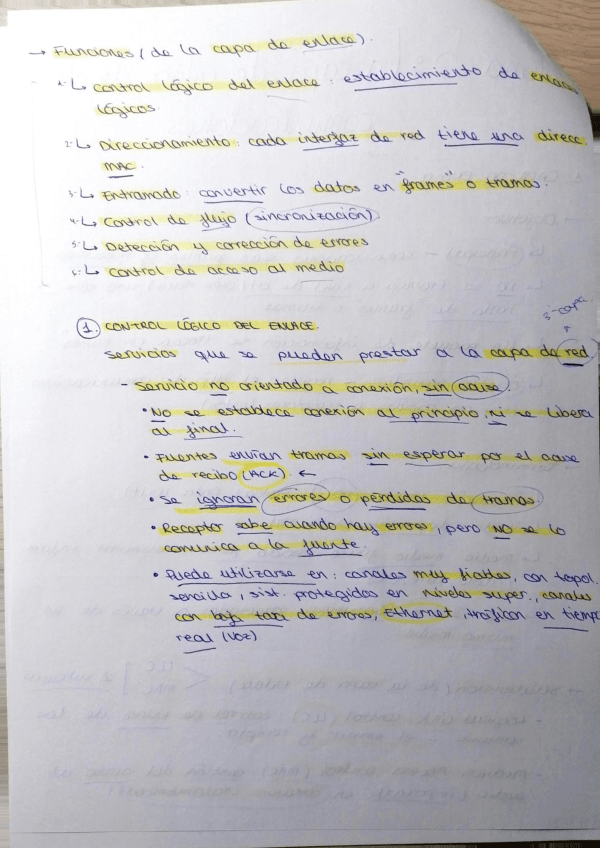 → Funciones (de la capa de enlace).
1- ↳ control lógico del enlace: establecimiento de enlaces
lógicos
2- ↳ Direccionamiento: cada interfaz de red tiene una direcc.
MAC.
3- ↳ Entramado: convertir los datos en "frames" o tramas.
4- ↳ Control de flujo (sincronización)
5- ↳ Detección y corrección de errores
6- ↳ control de acceso al medio
3-capa
① CONTROL LÓGICO DEL ENLACE.
servicios que se pueden prestar a la capa de red
- Servicio no orientado a conexión, sin acuse.
• No se establece conexión al principio, ni se libera
al final.
• Fuentes envían tramas sin esperar por el acuse
de recibo (ACK). ←
• Se ignoran errores o pérdidas de tramas
• Receptor sabe cuando hay errores, pero NO se lo
comunica a la fuente.
• Puede utilizarse en: canales muy fiables, con topol.
sencilla, sist. protegidos en niveles super., canales
con baja tasa de errores, Ethernet, tráfico en tiempo
real (voz)